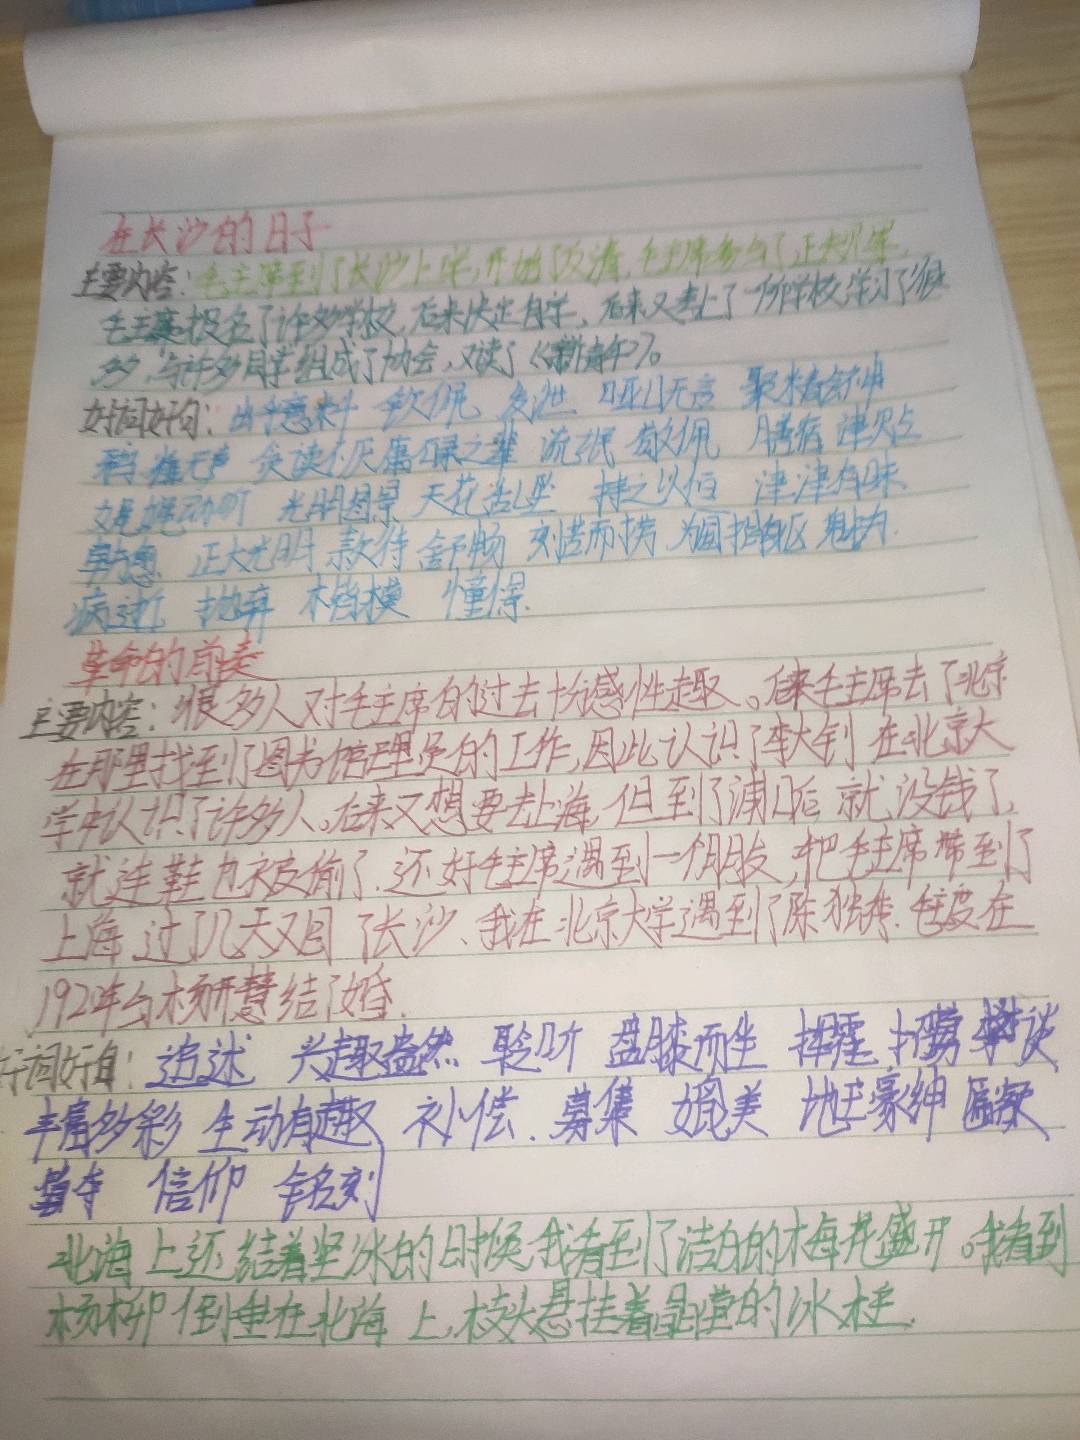 在长沙的日子
主要内容：毛主席到了长沙上学，开始了反清，毛主席参白了，正大
毛主席报名了许多学校，后来决定自学、后来又考上了一所学校，学习了很
多，与许多同学组成了协会，又读了《新青年》。
好词好句：出乎意料 钦佩 发泄 哑口无言 聚精会神
鸦雀无声 贪读不厌 庸碌之辈 流氓 敬佩 津贴
娓娓动听 光明图景 天花乱坠 持之以恒 津津有味
正大光明 款待 舒畅 刻苦耐劳 为国 魅力
病逝 抛弃 楷模 憧憬
革命的前奏
主要内容：很多人对毛主席的过去十分感性趣。后来毛主席去了北京
在那里找到了图书馆理员的工作，因此认识了李大钊 在北京大
学中认识了许多人。后来又想要去上海，但到了浦口后 就没钱了，
就连鞋也被偷了．还好毛主席遇到一个朋友，把毛主席带到了
上海，过了几天又回了长沙、我在北京大学遇到了陈独秀．在
1920年与杨开慧结了婚．
好词好句：追述 兴趣盎然 聆听 盘膝而坐 挥霍 攀谈
丰富多彩 生动有趣 补偿．募集 媲美 地主豪绅
信仰 铭刻
北海上还结着坚冰的时候，我看到了洁白的梅花盛开。我看到
杨柳倒垂在北海上，枝头悬挂着晶莹的冰柱．